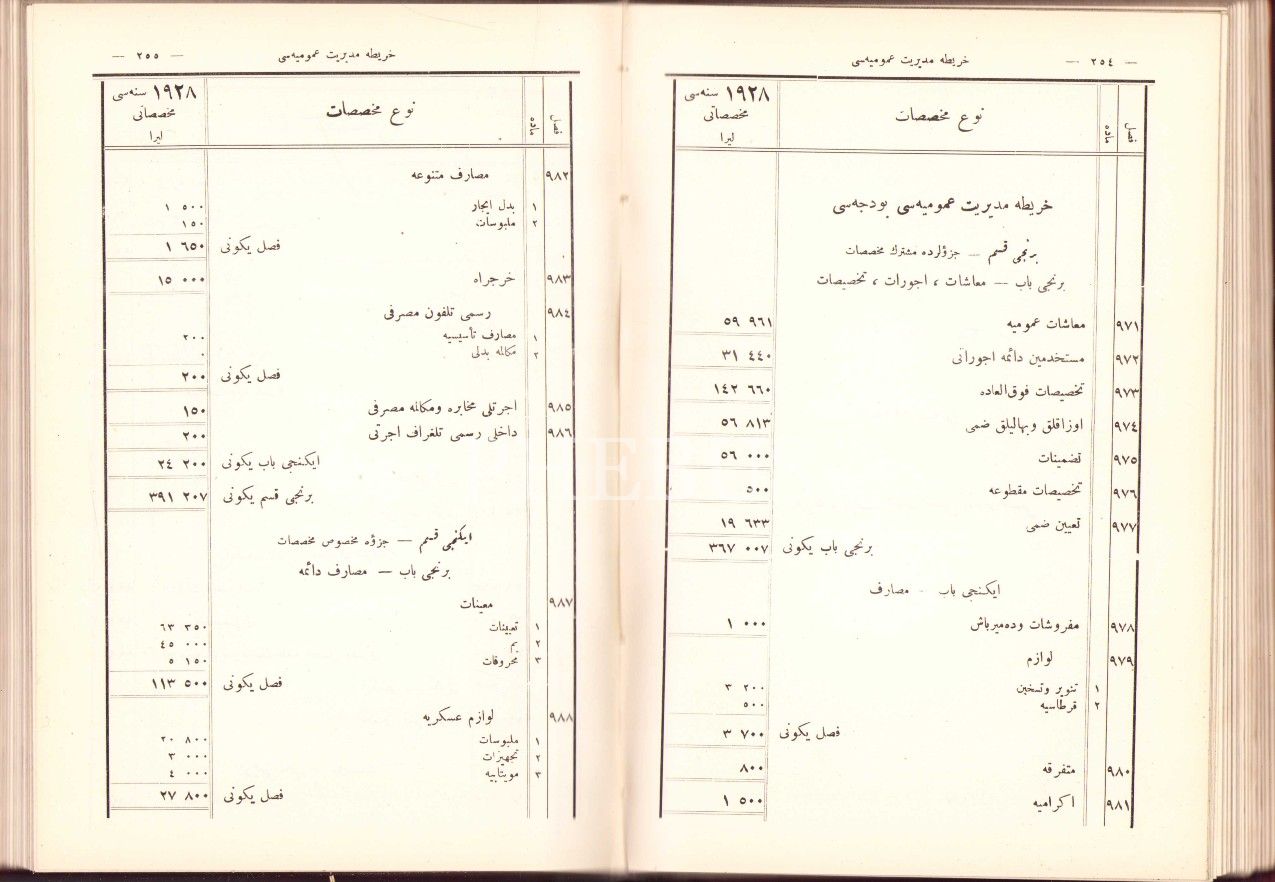 — ٢٥٤ —
خريطه مديريت عموميه‌سى
فصل ماده نوع مخصصات ١٩٢٨ سنه‌سى
مخصصاتى
ليرا
خريطه مديريت عموميه‌سى بودجه‌سى
برنجى قسم — جزؤلرده مشترك مخصصات
برنجى باب — معاشات ، اجورات ، تخصيصات
٩٧١ معاشات عموميه ٥٩ ٩٦١
٩٧٢ مستخدمين دائمه اجوراتى ٣١ ٤٤٠
٩٧٣ تخصيصات فوق‌العاده ١٤٢ ٦٦٠
٩٧٤ اوزاقلق وبهاليلق ضمى ٥٦ ٨١٣
٩٧٥ تضمينات ٥٦ ٠٠٠
٩٧٦ تخصيصات مقطوعه ٥٠٠
٩٧٧ تعيين ضمى ١٩ ٦٣٣
برنجى باب يكونى ٣٦٧ ٠٠٧
ايكنجى باب - مصارف
٩٧٨ مفروشات وده‌ميرباش ١ ٠٠٠
٩٧٩ لوازم
١ تنوير وتسخين ٣ ٢٠٠
٢ قرطاسيه ٥٠٠
فصل يكونى ٣ ٧٠٠
٩٨٠ متفرقه ٨٠٠
٩٨١ اكراميه ١ ٥٠٠
خريطه مديريت عموميه‌سى
— ٢٥٥ —
فصل ماده نوع مخصصات ١٩٢٨ سنه‌سى
مخصصاتى
ليرا
٩٨٢ مصارف متنوعه
١ بدل ايجار ١ ٥٠٠
٢ ملبوسات ١٥٠
فصل يكونى ١ ٦٥٠
٩٨٣ خرجراه ١٥ ٠٠٠
٩٨٤ رسمى تلفون مصرفى
١ مصارف تأسيسيه ٢٠٠
٢ مكالمه بدلى ٠
فصل يكونى ٢٠٠
٩٨٥ اجرتلى مخابره ومكالمه مصرفى ١٥٠
٩٨٦ داخلى رسمى تلغراف اجرتى ٢٠٠
ايكنجى باب يكونى ٢٤ ٢٠٠
برنجى قسم يكونى ٣٩١ ٢٠٧
ايكنجى قسم — جزؤه مخصوص مخصصات
برنجى باب — مصارف دائمه
٩٨٧ معينات
١ تعيينات ٦٣ ٣٥٠
٢ يم ٤٥ ٠٠٠
٣ محروقات ٥ ١٥٠
فصل يكونى ١١٣ ٥٠٠
٩٨٨ لوازم عسكريه
١ ملبوسات ٢٠ ٨٠٠
٢ تجهيزات ٣ ٠٠٠
٣ مويتابيه ٤ ٠٠٠
فصل يكونى ٢٧ ٨٠٠